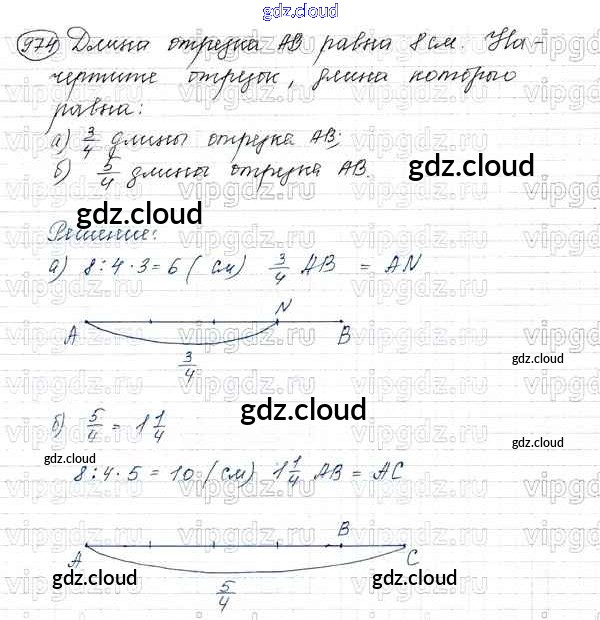 gdz.cloud
974) Длина отрезка AB равна 8 см. На-
чертите отрезок, длина которого
равна:
а) 3/4 длины отрезка AB;
б) 5/4 длины отрезка AB.
gdz.cloud
Решение:
а) 8:4·3=6 (см) 3/4 AB = AN
A N B
3/4
gdz.cloud
gdz.cloud
б) 5/4 = 1 1/4
gdz.cloud
gdz.cloud
8:4·5=10 (см) 1 1/4 AB = AC
A B C
gdz.cloud
gdz.cloud
5/4
vipgdz.ru